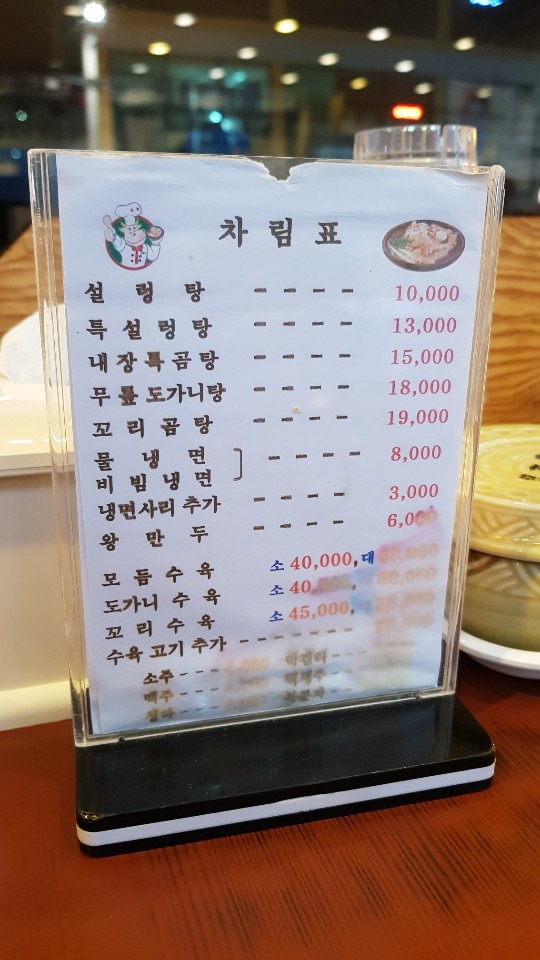 차림표
설렁탕 ---- 10,000
특설렁탕 ---- 13,000
내장특곰탕 ---- 15,000
무릎도가니탕 ---- 18,000
꼬리곰탕 ---- 19,000
물냉면
비빔냉면 ] ---- 8,000
냉면사리추가 ---- 3,000
왕만두 ---- 6,000
모듬수육 소 40,000, 대
도가니수육 소
꼬리수육 소 45,000,
수육고기추가 -------
소주 ---
맥주 ---